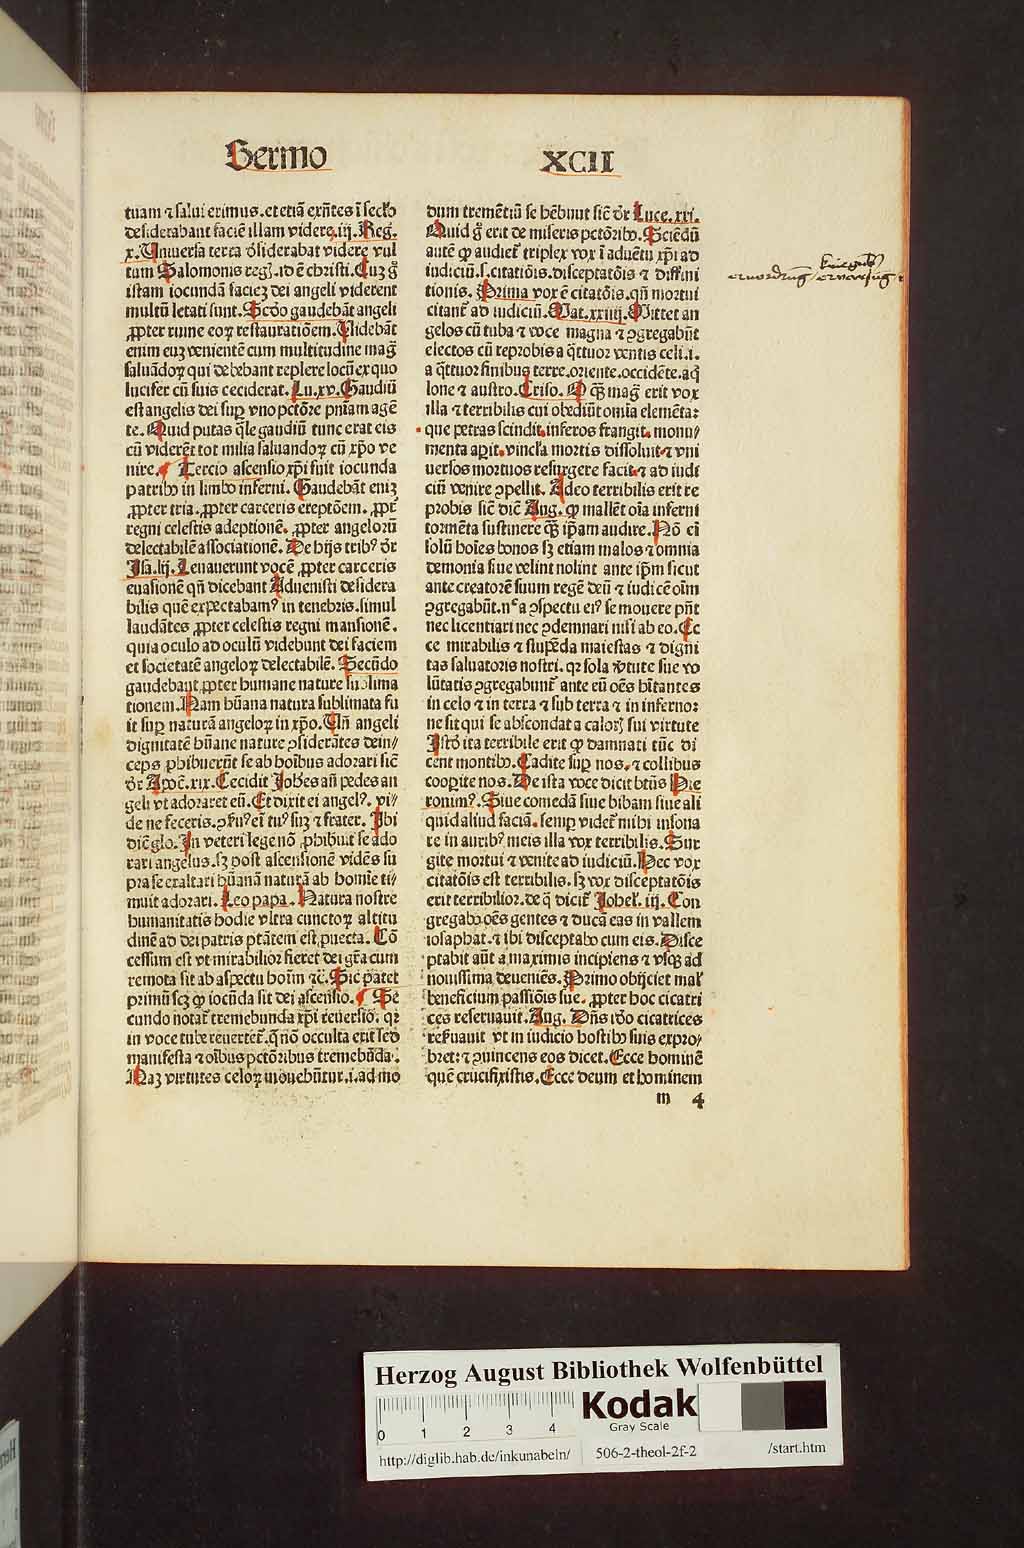 Sermo XCII
tuam ⁊ salui erimus. et etiā exñtes ī sec̄lo
desiderabant faciē illam videre. iij. Reg.
x. Uniuersa terra d̄siderabat videre vul
tum Salomonis regꝭ. id ē christi. Cuʒ g̊
istam iocundā facieʒ dei angeli viderent
multū letati sunt. Scd̄o gaudebāt angeli
ꝓpter ruine eoꝝ restauratiōem. Uidebāt
enim euʒ venientē cum multitudine maḡ
saluādoꝝ qui debebant replere locū ex quo
lucifer cū suis ceciderat. Lu. xv. Gaudiū
est angelis dei suꝑ vno pctōre pniam agē
te. Quid putas q̄le gaudiū tunc erat eis
cū viderēt tot milia saluandoꝝ cū xp̄o ve
nire. Tercio ascensio xp̄i fuit iocunda
patribꝰ in limbo inferni. Gaudebāt eniʒ
ꝓpter tria. ꝓpter carceris ereptōem. ꝓpt̄
regni celestis adeptionē. ꝓpter angeloꝝ
delectabilē associationē. De hijs tribꝰ dr̄
Isa. lij. Leuauerunt vocē ꝓpter carceris
euasionē qn̄ dicebant Aduenisti desidera
bilis quē expectabamꝰ in tenebris. simul
laudātes ꝓpter celestis regni mansionē.
quia oculo ad oculū videbunt dei faciem
et societatē angeloꝝ delectabilē. Secūdo
gaudebant ꝓpter humane nature sublima
tionem. Nam hūana natura sublimata fu
it suꝑ naturā angeloꝝ in xp̄o. Uñ angeli
dignitatē hūane nature ꝯsiderātes dein⸗
ceps ꝓhibuerūt se ab hoībus adorari sic̄
dr̄ Apoc̄. xix. Cecidit Johēs añ pedes an
geli vt adoraret eū. Et dixit ei angelꝰ. vi⸗
de ne feceris. ꝯẜuꝰ eī tuꝰ suʒ ⁊ frater. Ibi
dic̄ glo. In veteri lege nō ꝓhibuit se ado
rari angelus. sʒ post ascensionē vidēs su
pra se exaltari hūanā naturā ab homīe ti⸗
muit adorari. Leo papa. Natura nostre
humanitatis hodie vltra cunctoꝝ altitu
dinē ad dei patris ptātem est ꝓuecta. Cō
cessum est vt mirabilior fieret dei gr̄a cum
remota sit ab aspectu hoīm ⁊c̄. Sic patet
primū scʒ ꝙ iocūda sit dei ascensio. Se
cundo notat̄ tremebunda xp̄i reuersio. qꝛ
in voce tube reuertet̄. q̄ nō occulta erit sed
manifesta ⁊ oībus pctōribus tremebūda.
Naʒ virtutes celoꝝ mouebūtur. i. ad mo
dum tremētiū se hēbunt sic̄ dr̄ Luce. xxi.
Quid g̊ erit de miseris pctōribꝰ. Sciēdū
autē ꝙ audiet̄ triplex vox ī aduētu xp̄i ad
iudiciū. s. citatiōis. disceptatōis ⁊ diffini
tionis. Prima vox ē citatōis. qn̄ mortui
citant̄ ad iudiciū. Mat. xxiiij. Mittet an
gelos cū tuba ⁊ voce magna ⁊ ꝯgregabūt
electos cū reprobis a q̄ttuor ventis celi. i.
a q̄ttuor finibus terre. oriente. occidēte. aq̇
lone ⁊ austro. Criso. O q̄ꝫ maḡ erit vox
illa ⁊ terribilis cui obediūt omīa elemēta:
que petras scindit. inferos frangit. monu⸗
menta aꝑit. vincl̄a mortis dissoluit ⁊ vni
uersos mortuos resurgere facit ⁊ ad iudi
ciū venire ꝯpellit. Adeo terribilis erit re
probis sic̄ dic̄ Aug. ꝙ mallēt oīa inferni
tormēta sustinere q̄ꝫ ip̄am audire. Nō eī
solū hoīes bonos sʒ etiam malos ⁊ omnia
demonia siue velint nolint ante ip̄m sicut
ante creatorē suum regē deū ⁊ iudicē oīm
ꝯgregabūt. nᶜ a ꝯspectu eiꝰ se mouere pn̄t
nec licentiari nec ꝯdemnari nisi ab eo. Ec
ce mirabilis ⁊ stupēda maiestas ⁊ digni
tas saluatoris nostri. qꝛ sola v̄tute sue vo
lūtatis ꝯgregabunt̄ ante eū oēs hītantes
in celo ⁊ in terra ⁊ sub terra ⁊ in inferno:
ne sit qui se abscondat a calorꝭ sui virtute
Istō ita terribile erit ꝙ damnati tūc di
cent montibꝰ. Cadite suꝑ nos. ⁊ collibus
cooꝑite nos. De ista voce dicit btūs Hie
ronimꝰ. Siue comedā siue bibam siue ali
quid aliud faciā. semꝑ videt̄ mihi insona
re in auribꝰ meis illa vox terribilis. Sur
gite mortui ⁊ venite ad iudiciū. Hec vox
citatōis est terribilis. sʒ vox disceptatōis
erit terribilior. de q̄ dicit̄ Johel. iij. Con
gregabo oēs gentes ⁊ ducā eas in vallem
iosaphat. ⁊ ibi disceptabo cum eis. Disce
ptabit aūt a maximis incipiens ⁊ vsqꝫ ad
nouissima deueniēs. Primo obijciet mał
beneficium passiōis sue. ꝓpter hoc cicatri
ces reseruauit. Aug. Dn̄s iō cicatrices
reẜuauit vt in iudicio hostibꝰ suis expro⸗
bret: ⁊ ꝯuincens eos dicet. Ecce hominē
quē crucifixistis. Ecce deum et hominem
m 4
Herzog August Bibliothek Wolfenbüttel
0 1 2 3 4
Kodak
Gray Scale
http://diglib.hab.de/inkunabeln/ 506-2-theol-2f-2 /start.htm